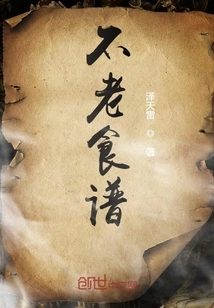 不老食谱
泽天雷
◎著
创世